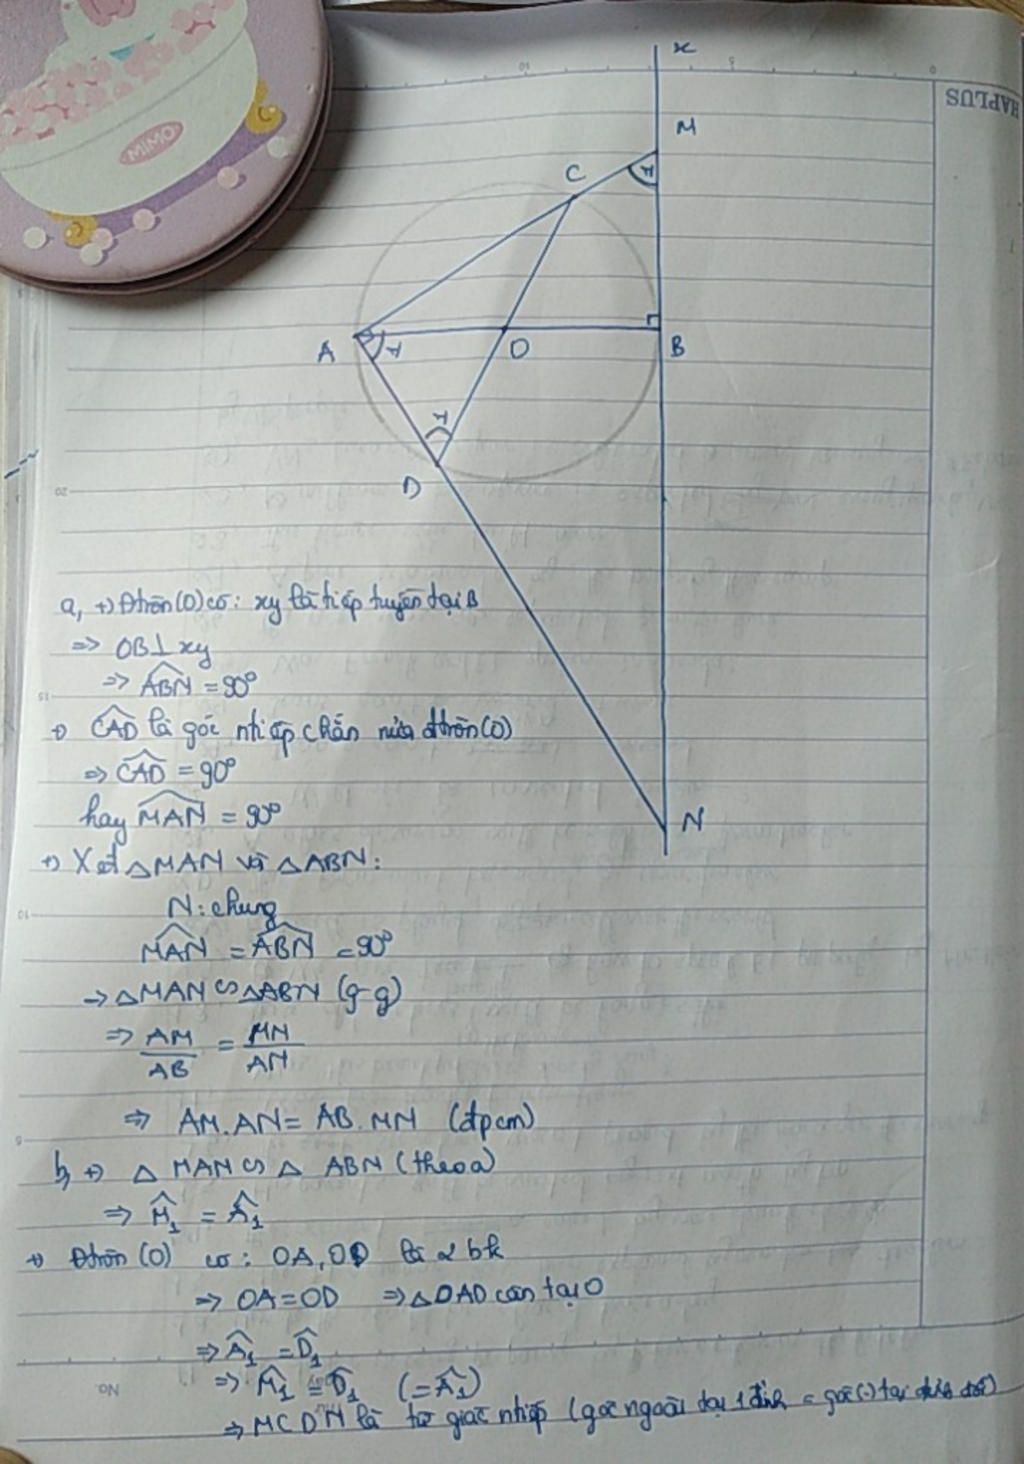 MIMO
HAPLUS
0
5
10
x
M
C
1
A
1
O
B
1
D
20
15
10
5
N
a, +) Đtròn(O) có: xy là tiếp tuyến tại B
=> OB⊥xy
=> ABN = 90°
+) CAD là góc nhiếp chắn nửa đtròn(O)
=> CAD = 90°
hay MAN = 90°
+) Xét △MAN và △ABN:
N: chung
MAN = ABN = 90°
-> △MAN ∽ △ABN (g-g)
=> AM/AB = MN/AN
=> AM.AN = AB.MN (đpcm)
b, +) △ MAN ∽ △ ABN (theo a)
=> M̂1 = Â1
+) Đtròn (O) có: OA, OD là 2 bk
=> OA = OD => △OAD cân tại O
=> Â1 = D̂1
=> M̂1 = D̂1 (= Â1)
=> MCDN là tứ giác nhiếp (góc ngoài tại 1 đỉnh = góc(-) tại đỉnh đối)
No.